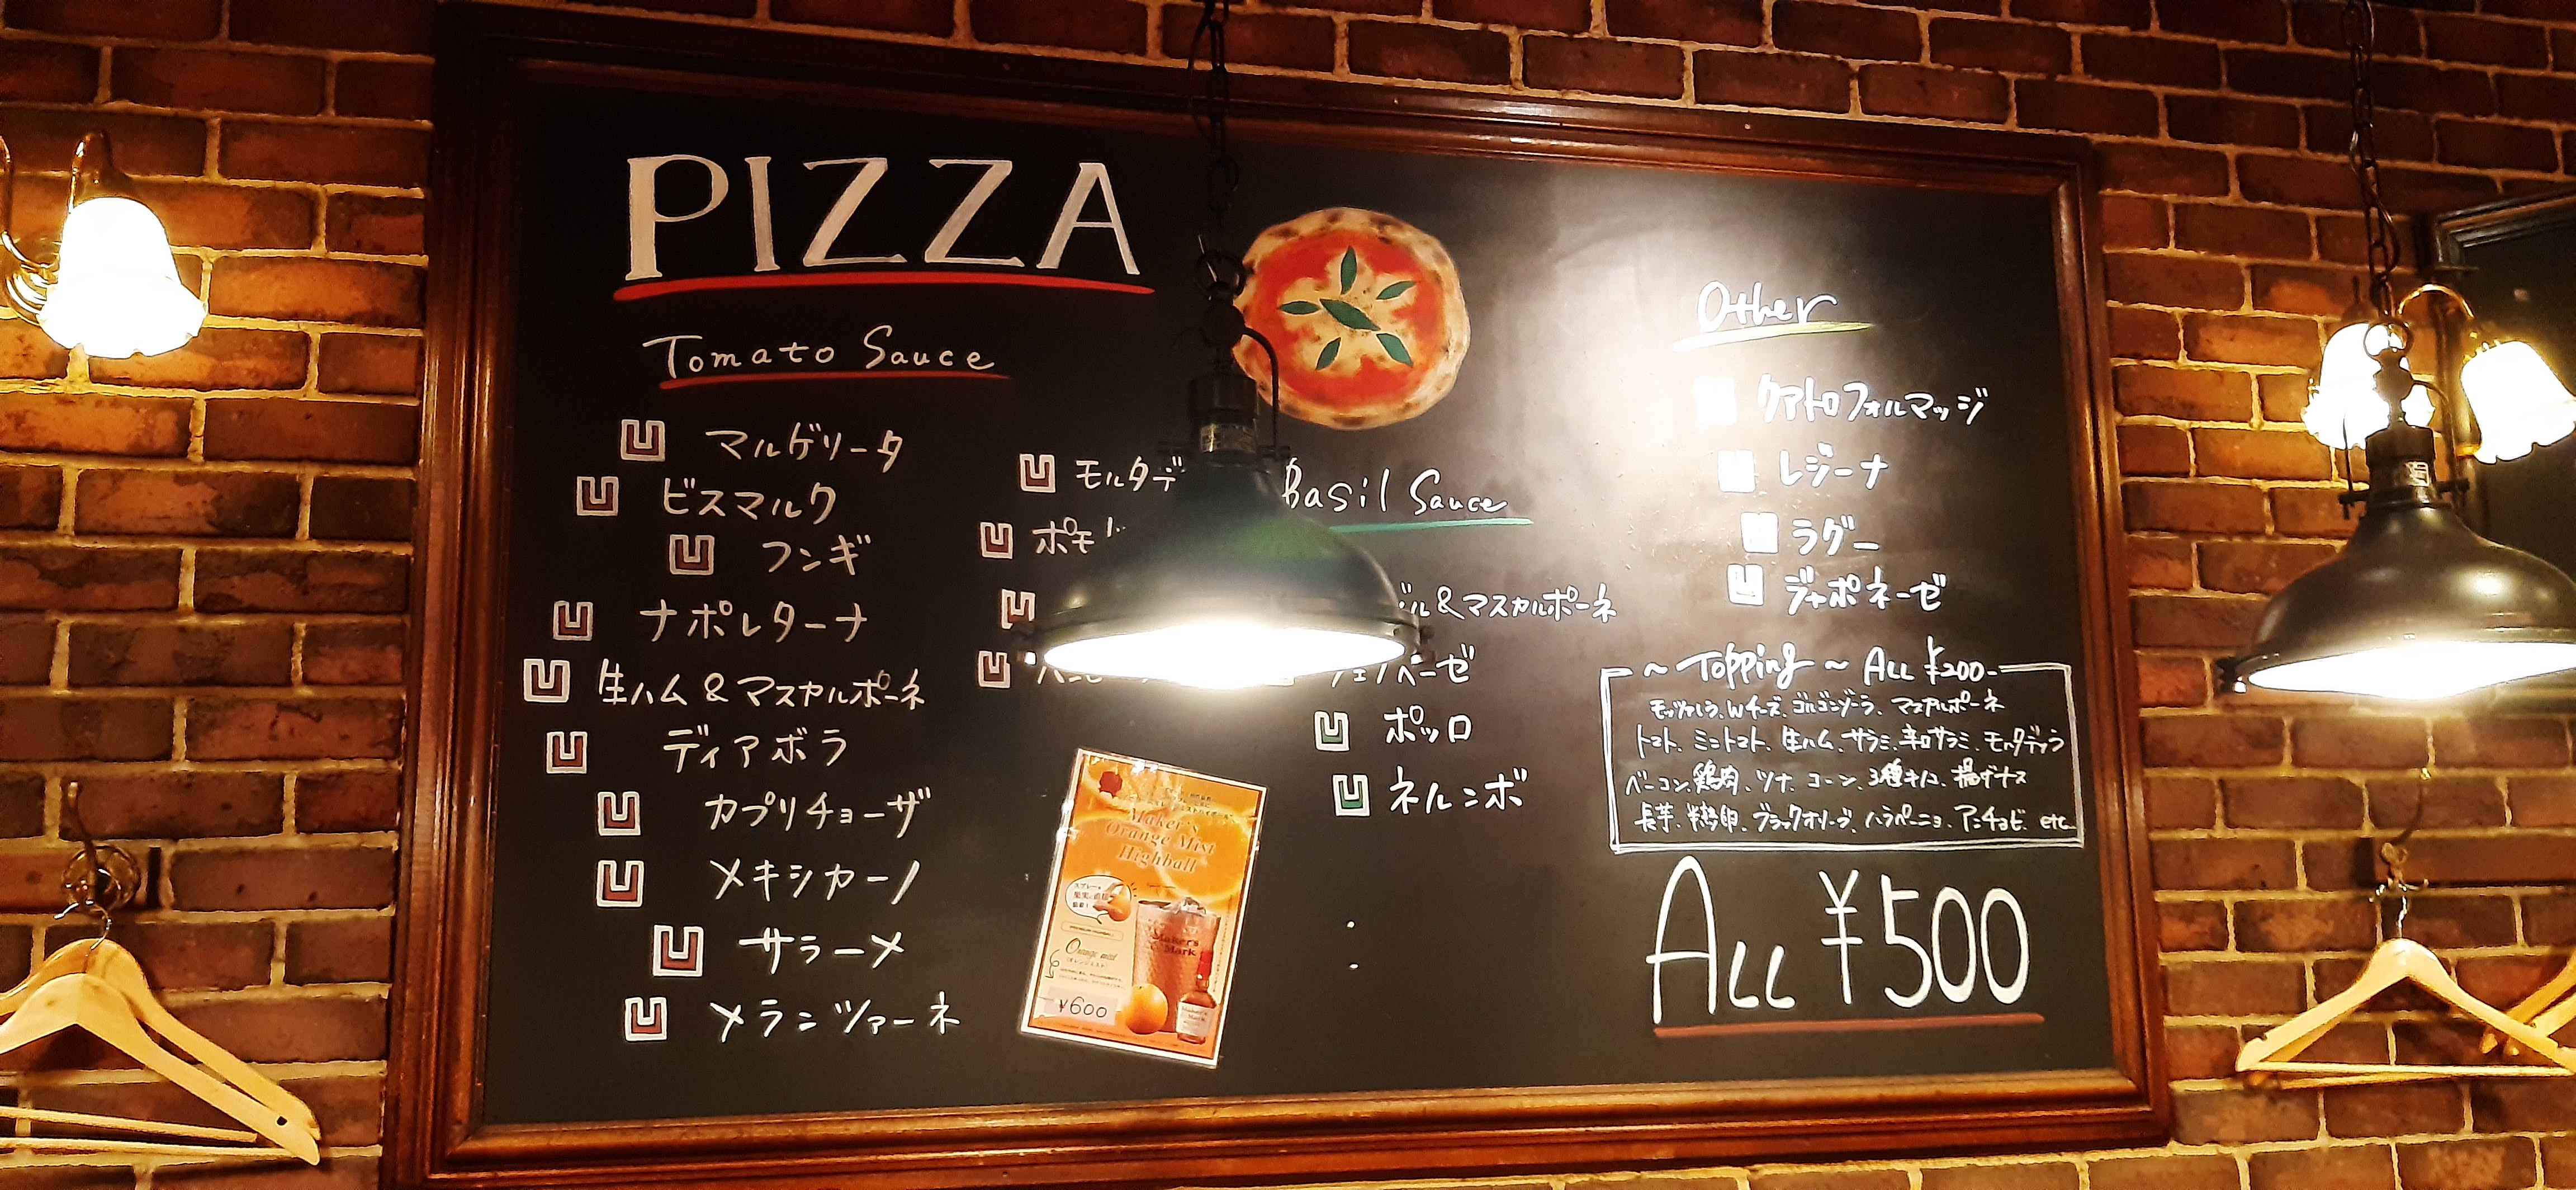 PIZZA
Tomato Sauce
マルゲリータ
ビスマルク
フンギ
ナポレターナ
生ハム & マスカルポーネ
ディアボラ
カプリチョーザ
メキシカーノ
サラーメ
メランツァーネ
モルタデ
ポモ
Basil Sauce
ル&マスカルポーネ
ポッロ
ネルンボ
Other
クアトロフォルマッジ
レジーナ
ラグー
ジャポネーゼ
~ Topping ~ ALL ¥200-
モッツァレラ、Wチーズ、ゴルゴンゾーラ、マスカルポーネ
トマト、ミニトマト、生ハム、サラミ、辛口サラミ、モルタデッラ
ベーコン、鶏肉、ツナ、コーン、3種キノコ、揚ゲナス
長芋、半熟卵、ブラックオリーブ、ハラペーニョ、アンチョビ、etc
ALL ¥500
Maker's
Orange Mist
Highball
Orange mist
Maker's
Mark
¥600